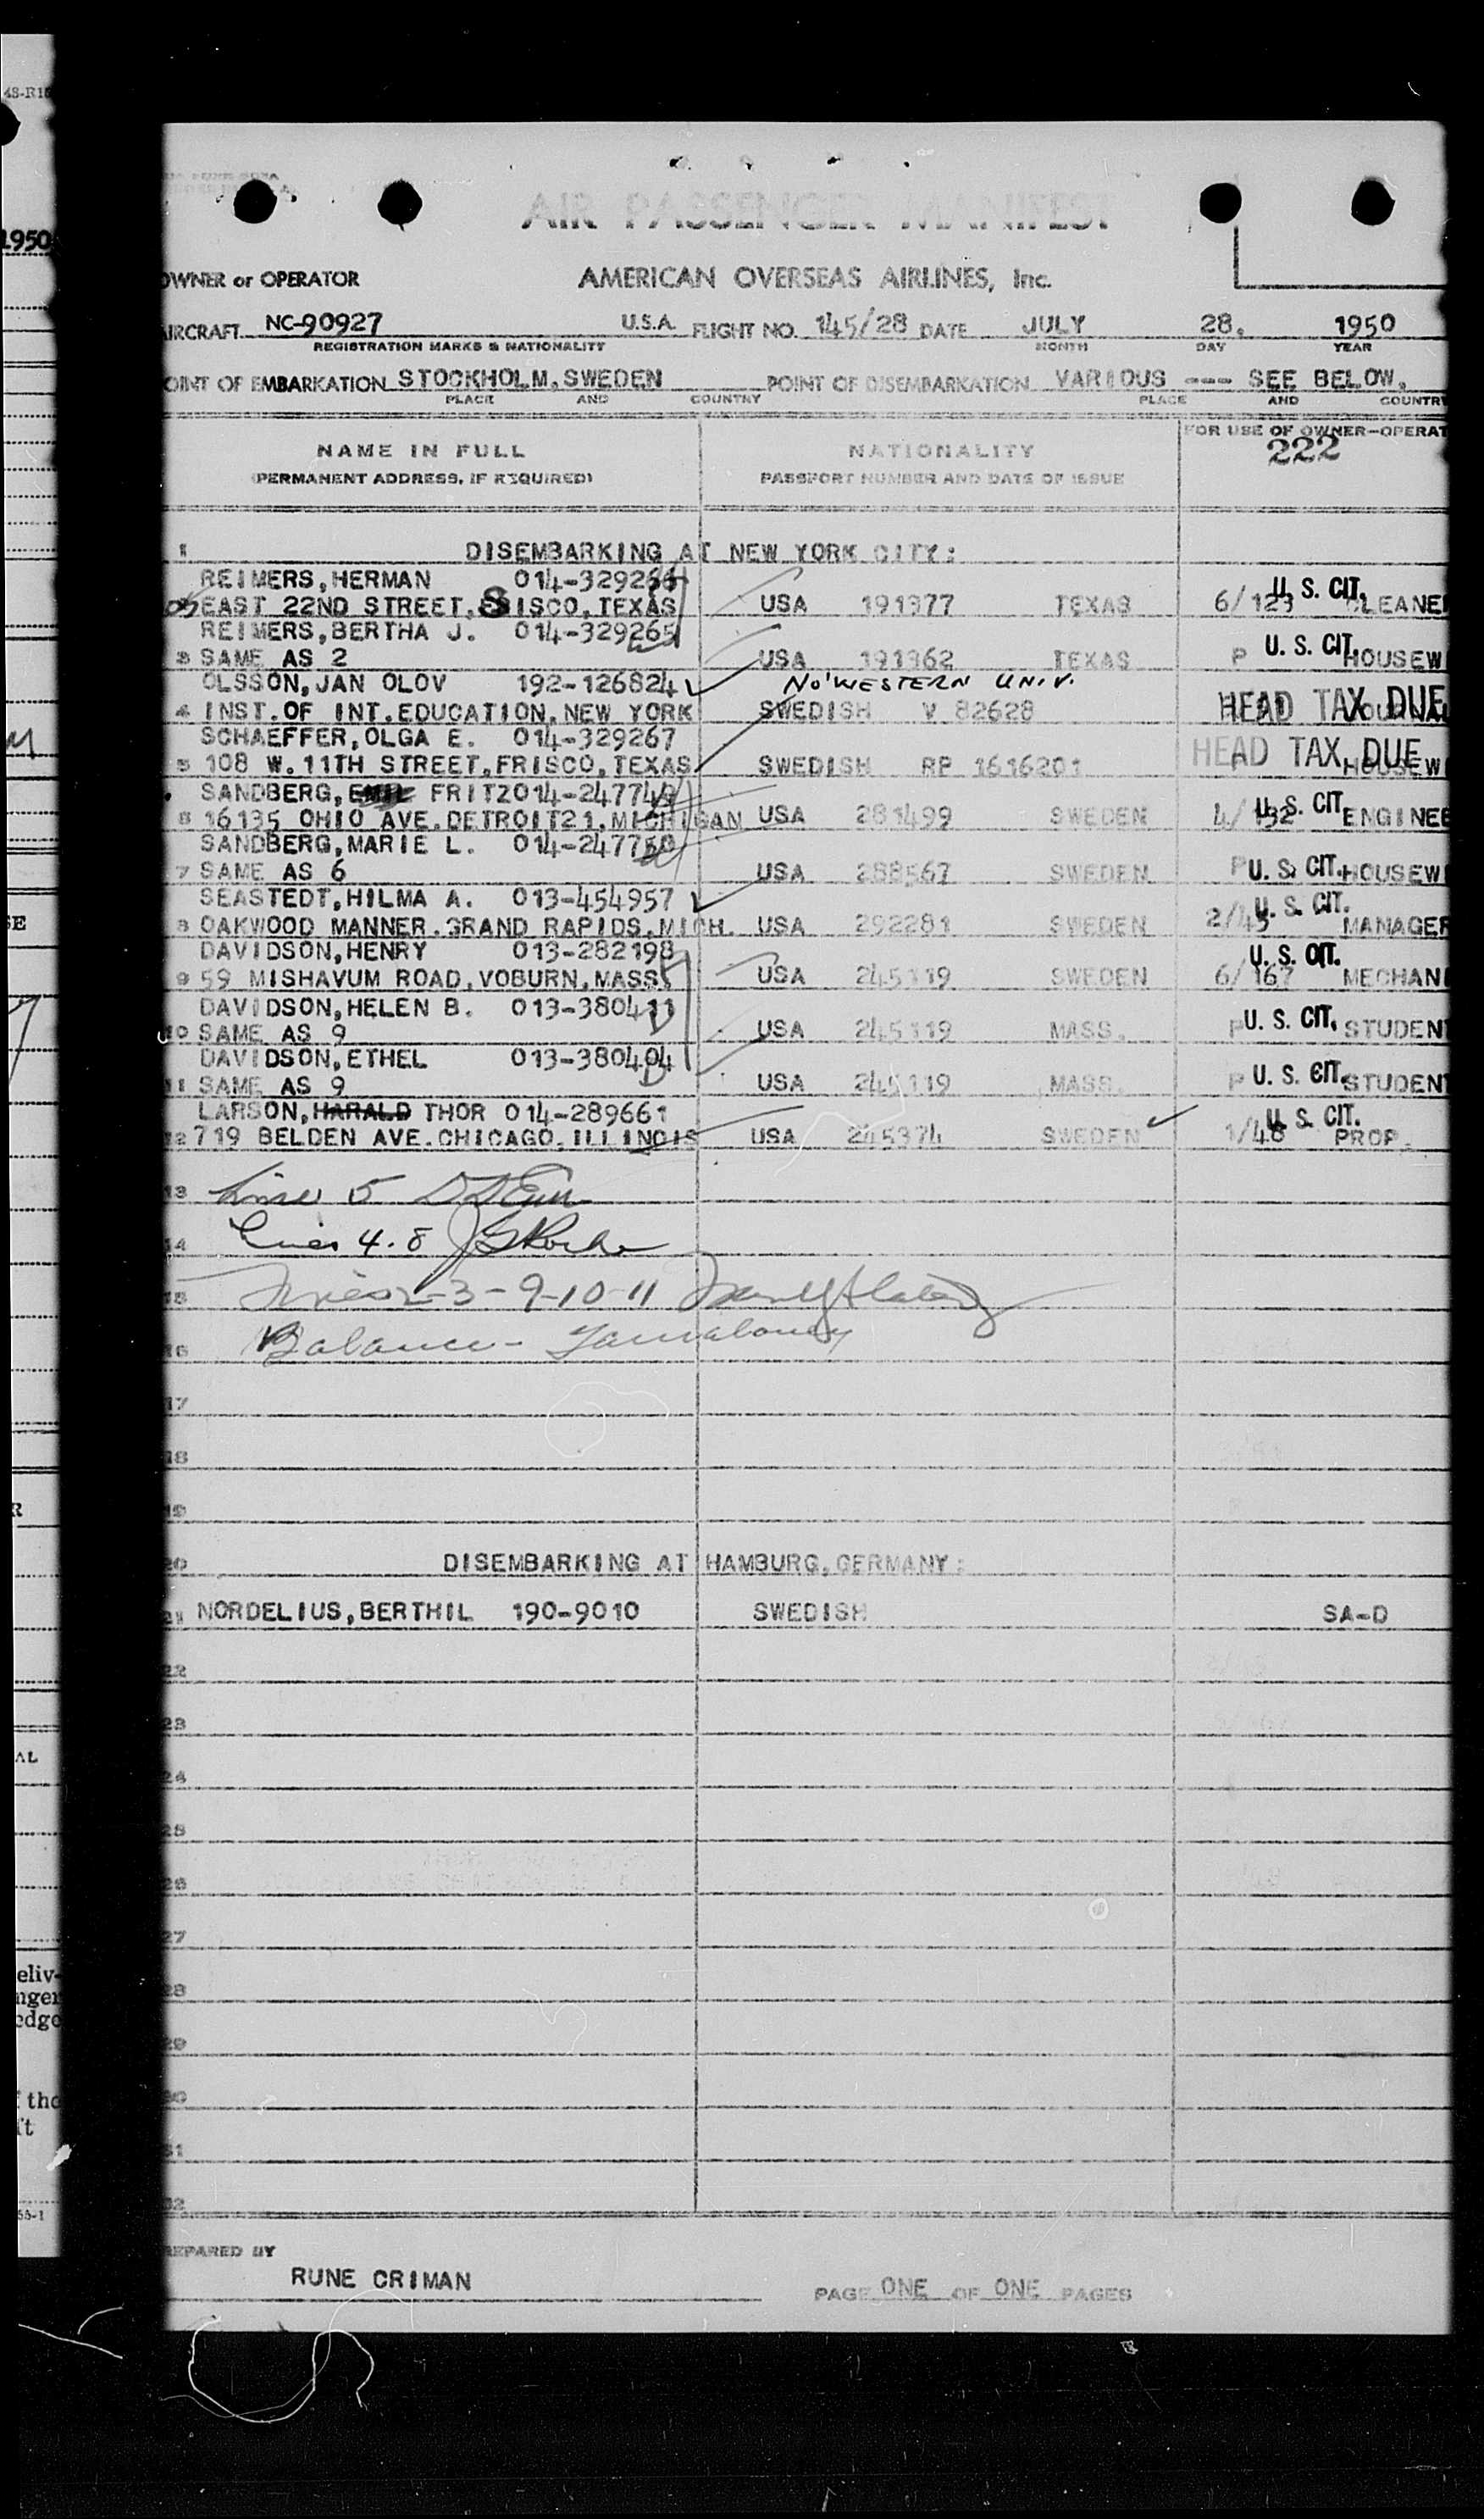 48-R1
1950
AIR PASSENGER MANIFEST
OWNER or OPERATOR AMERICAN OVERSEAS AIRLINES, Inc.
AIRCRAFT NC-90927 U.S.A. FLIGHT NO. 145/28 DATE JULY 28, 1950
REGISTRATION MARKS & NATIONALITY MONTH DAY YEAR
OINT OF EMBARKATION STOCKHOLM, SWEDEN POINT OF DISEMBARKATION VARIOUS --- SEE BELOW.
PLACE AND COUNTRY PLACE AND COUNTRY
NAME IN FULL NATIONALITY FOR USE OF OWNER-OPERAT
222
(PERMANENT ADDRESS, IF REQUIRED) PASSPORT NUMBER AND DATE OF ISSUE
1 DISEMBARKING AT NEW YORK CITY:
REIMERS, HERMAN 014-329266
EAST 22ND STREET, SISCO, TEXAS USA 191377 TEXAS 6/123 U. S. CIT. CLEANE
REIMERS, BERTHA J. 014-329265
3 SAME AS 2 USA 191362 TEXAS P U. S. CIT. HOUSEW
OLSSON, JAN OLOV 192-126824 NO'WESTERN UNIV.
4 INST. OF INT. EDUCATION, NEW YORK SWEDISH V 82628 HEAD TAX DUE
SCHAEFFER, OLGA E. 014-329267
5 108 W. 11TH STREET, FRISCO, TEXAS SWEDISH RP 1616201 HEAD TAX DUE HOUSEW
SANDBERG, EMIL FRITZ 014-247749
6 16135 OHIO AVE. DETROIT 21, MICHIGAN USA 281499 SWEDEN 4/132 U. S. CIT. ENGINEE
SANDBERG, MARIE L. 014-247750
7 SAME AS 6 USA 288567 SWEDEN P U. S. CIT. HOUSEW
SEASTEDT, HILMA A. 013-454957
8 OAKWOOD MANNER. GRAND RAPIDS, MICH. USA 292281 SWEDEN 2/45 U. S. CIT. MANAGER
DAVIDSON, HENRY 013-282198
9 59 MISHAVUM ROAD, VOBURN, MASS. USA 245119 SWEDEN 6/167 U. S. CIT. MECHANI
DAVIDSON, HELEN B. 013-380411
10 SAME AS 9 USA 245119 MASS. P U. S. CIT. STUDENT
DAVIDSON, ETHEL 013-380404
11 SAME AS 9 USA 245119 MASS. P U. S. CIT. STUDENT
LARSON, HARALD THOR 014-289661
12 719 BELDEN AVE. CHICAGO, ILLINOIS USA 245374 SWEDEN 1/48 U. S. CIT. PROP.
13 Line 5
14 Lines 4.8
15 Lines 2-3-9-10-11
16 Balance -
17
18
19
20 DISEMBARKING AT HAMBURG, GERMANY:
21 NORDELIUS, BERTHIL 190-9010 SWEDISH SA-D
22
23
24
25
26
27
28
29
30
31
32
REPARED BY
RUNE CRIMAN
PAGE ONE OF ONE PAGES